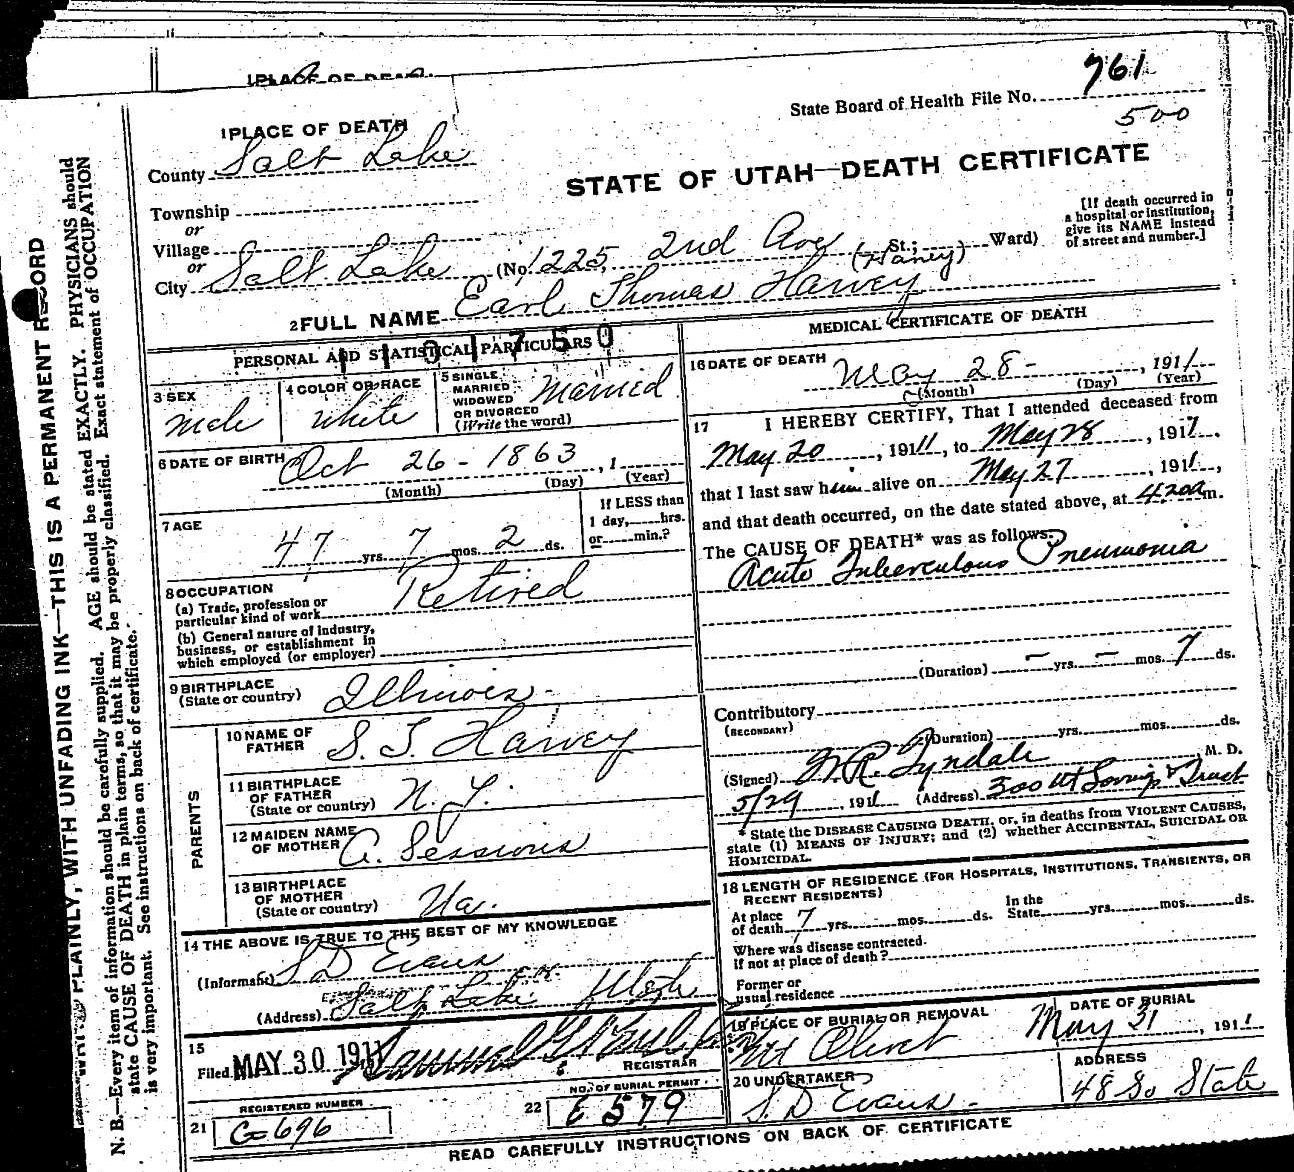 1 PLACE OF DEATH
State Board of Health File No. 761
500
County Salt Lake
STATE OF UTAH—DEATH CERTIFICATE
Township
or
Village
or
City Salt Lake (No. 1225, 2nd Ave St.; Ward)
[If death occurred in a hospital or institution, give its NAME instead of street and number.]
(Haney)
2 FULL NAME Earl Thomas Harvey
PERSONAL AND STATISTICAL PARTICULARS
1101750
3 SEX
male
4 COLOR OR RACE
white
5 SINGLE MARRIED WIDOWED OR DIVORCED (Write the word)
married
6 DATE OF BIRTH Oct 26 - 1863, 1
(Month) (Day) (Year)
7 AGE
47 yrs. 7 mos. 2 ds.
If LESS than
1 day, hrs.
or min.?
8 OCCUPATION
(a) Trade, profession or
particular kind of work
Retired
(b) General nature of industry,
business, or establishment in
which employed (or employer)
9 BIRTHPLACE
(State or country)
Illinois -
PARENTS
10 NAME OF
FATHER
S. T. Harvey
11 BIRTHPLACE
OF FATHER
(State or country)
N. Y.
12 MAIDEN NAME
OF MOTHER
A. Sessions
13 BIRTHPLACE
OF MOTHER
(State or country)
Va.
14 THE ABOVE IS TRUE TO THE BEST OF MY KNOWLEDGE
(Informant) S D Evans
(Address) Salt Lake Utah
15
Filed MAY 30 1911
REGISTRAR
REGISTERED NUMBER
21 G-696
NO. OF BURIAL PERMIT
22 E 579
MEDICAL CERTIFICATE OF DEATH
16 DATE OF DEATH
May 28 - , 1911
(Month) (Day) (Year)
17 I HEREBY CERTIFY, That I attended deceased from
May 20, 1911, to May 28, 1911,
that I last saw him alive on May 27, 1911,
and that death occurred, on the date stated above, at 4.20a m.
The CAUSE OF DEATH* was as follows:
Acute Tuberculous Pneumonia
(Duration) — yrs. — mos. 7 ds.
Contributory
(SECONDARY)
(Duration) yrs. mos. ds.
(Signed) W.R. Tyndale, M. D.
5/29, 1911 (Address) 300 Ut Savings & Trust
* State the DISEASE CAUSING DEATH, or, in deaths from VIOLENT CAUSES,
state (1) MEANS OF INJURY; and (2) whether ACCIDENTAL, SUICIDAL OR
HOMICIDAL.
18 LENGTH OF RESIDENCE (FOR HOSPITALS, INSTITUTIONS, TRANSIENTS, OR
RECENT RESIDENTS)
At place
of death 7 yrs. mos. ds.
In the
State yrs. mos. ds.
Where was disease contracted.
if not at place of death?
Former or
usual residence
19 PLACE OF BURIAL OR REMOVAL
Mt Olivet
DATE OF BURIAL
May 31, 1911
20 UNDERTAKER
S. D Evans -
ADDRESS
48 So State
READ CAREFULLY INSTRUCTIONS ON BACK OF CERTIFICATE
PLAINLY, WITH UNFADING INK—THIS IS A PERMANENT RECORD
N. B.—Every item of information should be carefully supplied. AGE should be stated EXACTLY. PHYSICIANS should
state CAUSE OF DEATH in plain terms, so that it may be properly classified. Exact statement of OCCUPATION
is very important. See instructions on back of certificate.